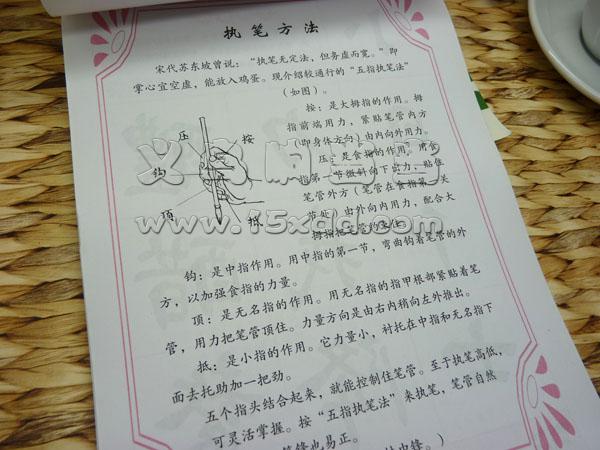 执笔方法
宋代苏东坡曾说：“执笔无定法，但务虚而宽。”即
掌心宜空虚，能放入鸡蛋。现介绍较通行的“五指执笔法”
（如图）。
按：是大拇指的作用。拇
指前端用力，紧贴笔管内方
（即身体方向）由内向外用力。
压：是食指的作用。用食
指第一节微斜向下出力，贴住
笔管外方（笔管在食指第二关
节处）由外向内用力，配合大
拇指把
压
按
钩
顶
抵
www.15xdd.com
钩：是中指作用。用中指的第一节，弯曲钩着笔管的外
方，以加强食指的力量。
顶：是无名指的作用。用无名指的指甲根部紧贴着笔
管，用力把笔管顶住。力量方向是由右内稍向左外推出。
抵：是小指的作用。它力量小，衬托在中指和无名指下
面去托助加一把劲。
五个指头结合起来，就能控制住笔管。至于执笔高低，
可灵活掌握。按“五指执笔法”来执笔，笔管自然
笔锋也易正。
中锋。）